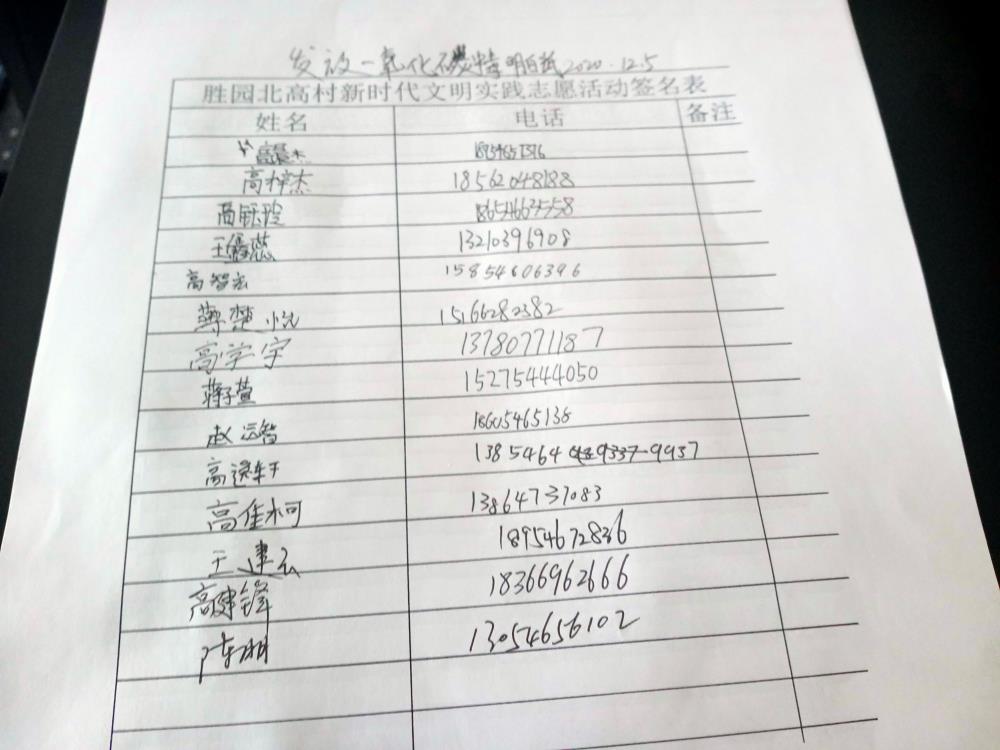 发放一氧化碳 明白纸 2020.12.5
胜园北高村新时代文明实践志愿活动签名表
姓名 电话 备注
高梓杰 18562048188
高钰玲 18654663558
王馨蕊 13210396908
高智宏 15854606396
薄楚悦 15166282382
高学宇 13780771187
蒋子萱 15275444050
赵运智 18605465138
高逸轩 1385464 9337 9937
高佳柯 13864737083
王建宏 18954672836
高建锋 18366962666
陈明 13054656102